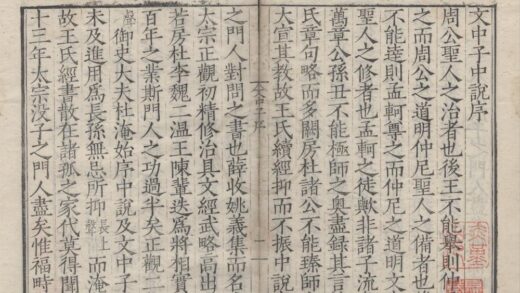 文中子中說序
周公聖人之治者也後王不能舉則仲
之而周公之道明仲尼聖人之備者也
不能達則孟軻尊之而仲尼之道明文
聖人之修者也孟軻之徒歟非諸子流
萬章公孫丑不能極師之奧盡錄其言
氏章句略而多闕房杜諸公不能臻師
大宣其教故王氏續經抑而不振中說
之門人對問之書也薛收姚義集而名
太宗正觀初精修治具文經武略高出
若房杜李魏二溫王陳輩迭爲將相實
百年之業斯門人之功過半矣正觀二
御史大夫杜淹始序中說及文中子
未及進用爲長孫無忌所抑長上聲而淹
故王氏經書散在諸孤之家代莫得聞
十三年太宗沒子之門人盡矣惟福時